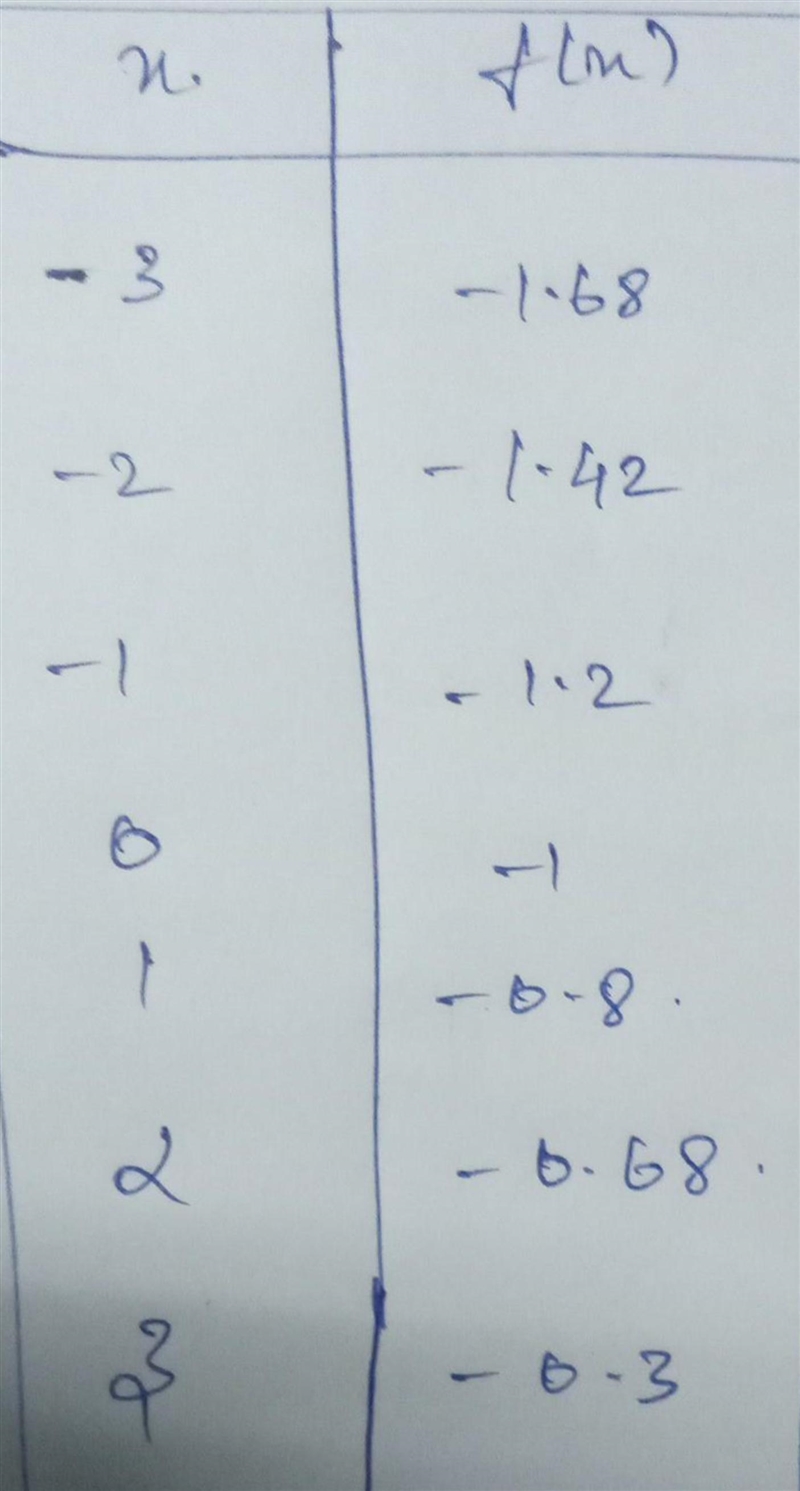 x. f(x)
-3 -1.68
-2 -1.42
-1 -1.2
0 -1
1 -0.8.
2 -0.68.
3 -0.3